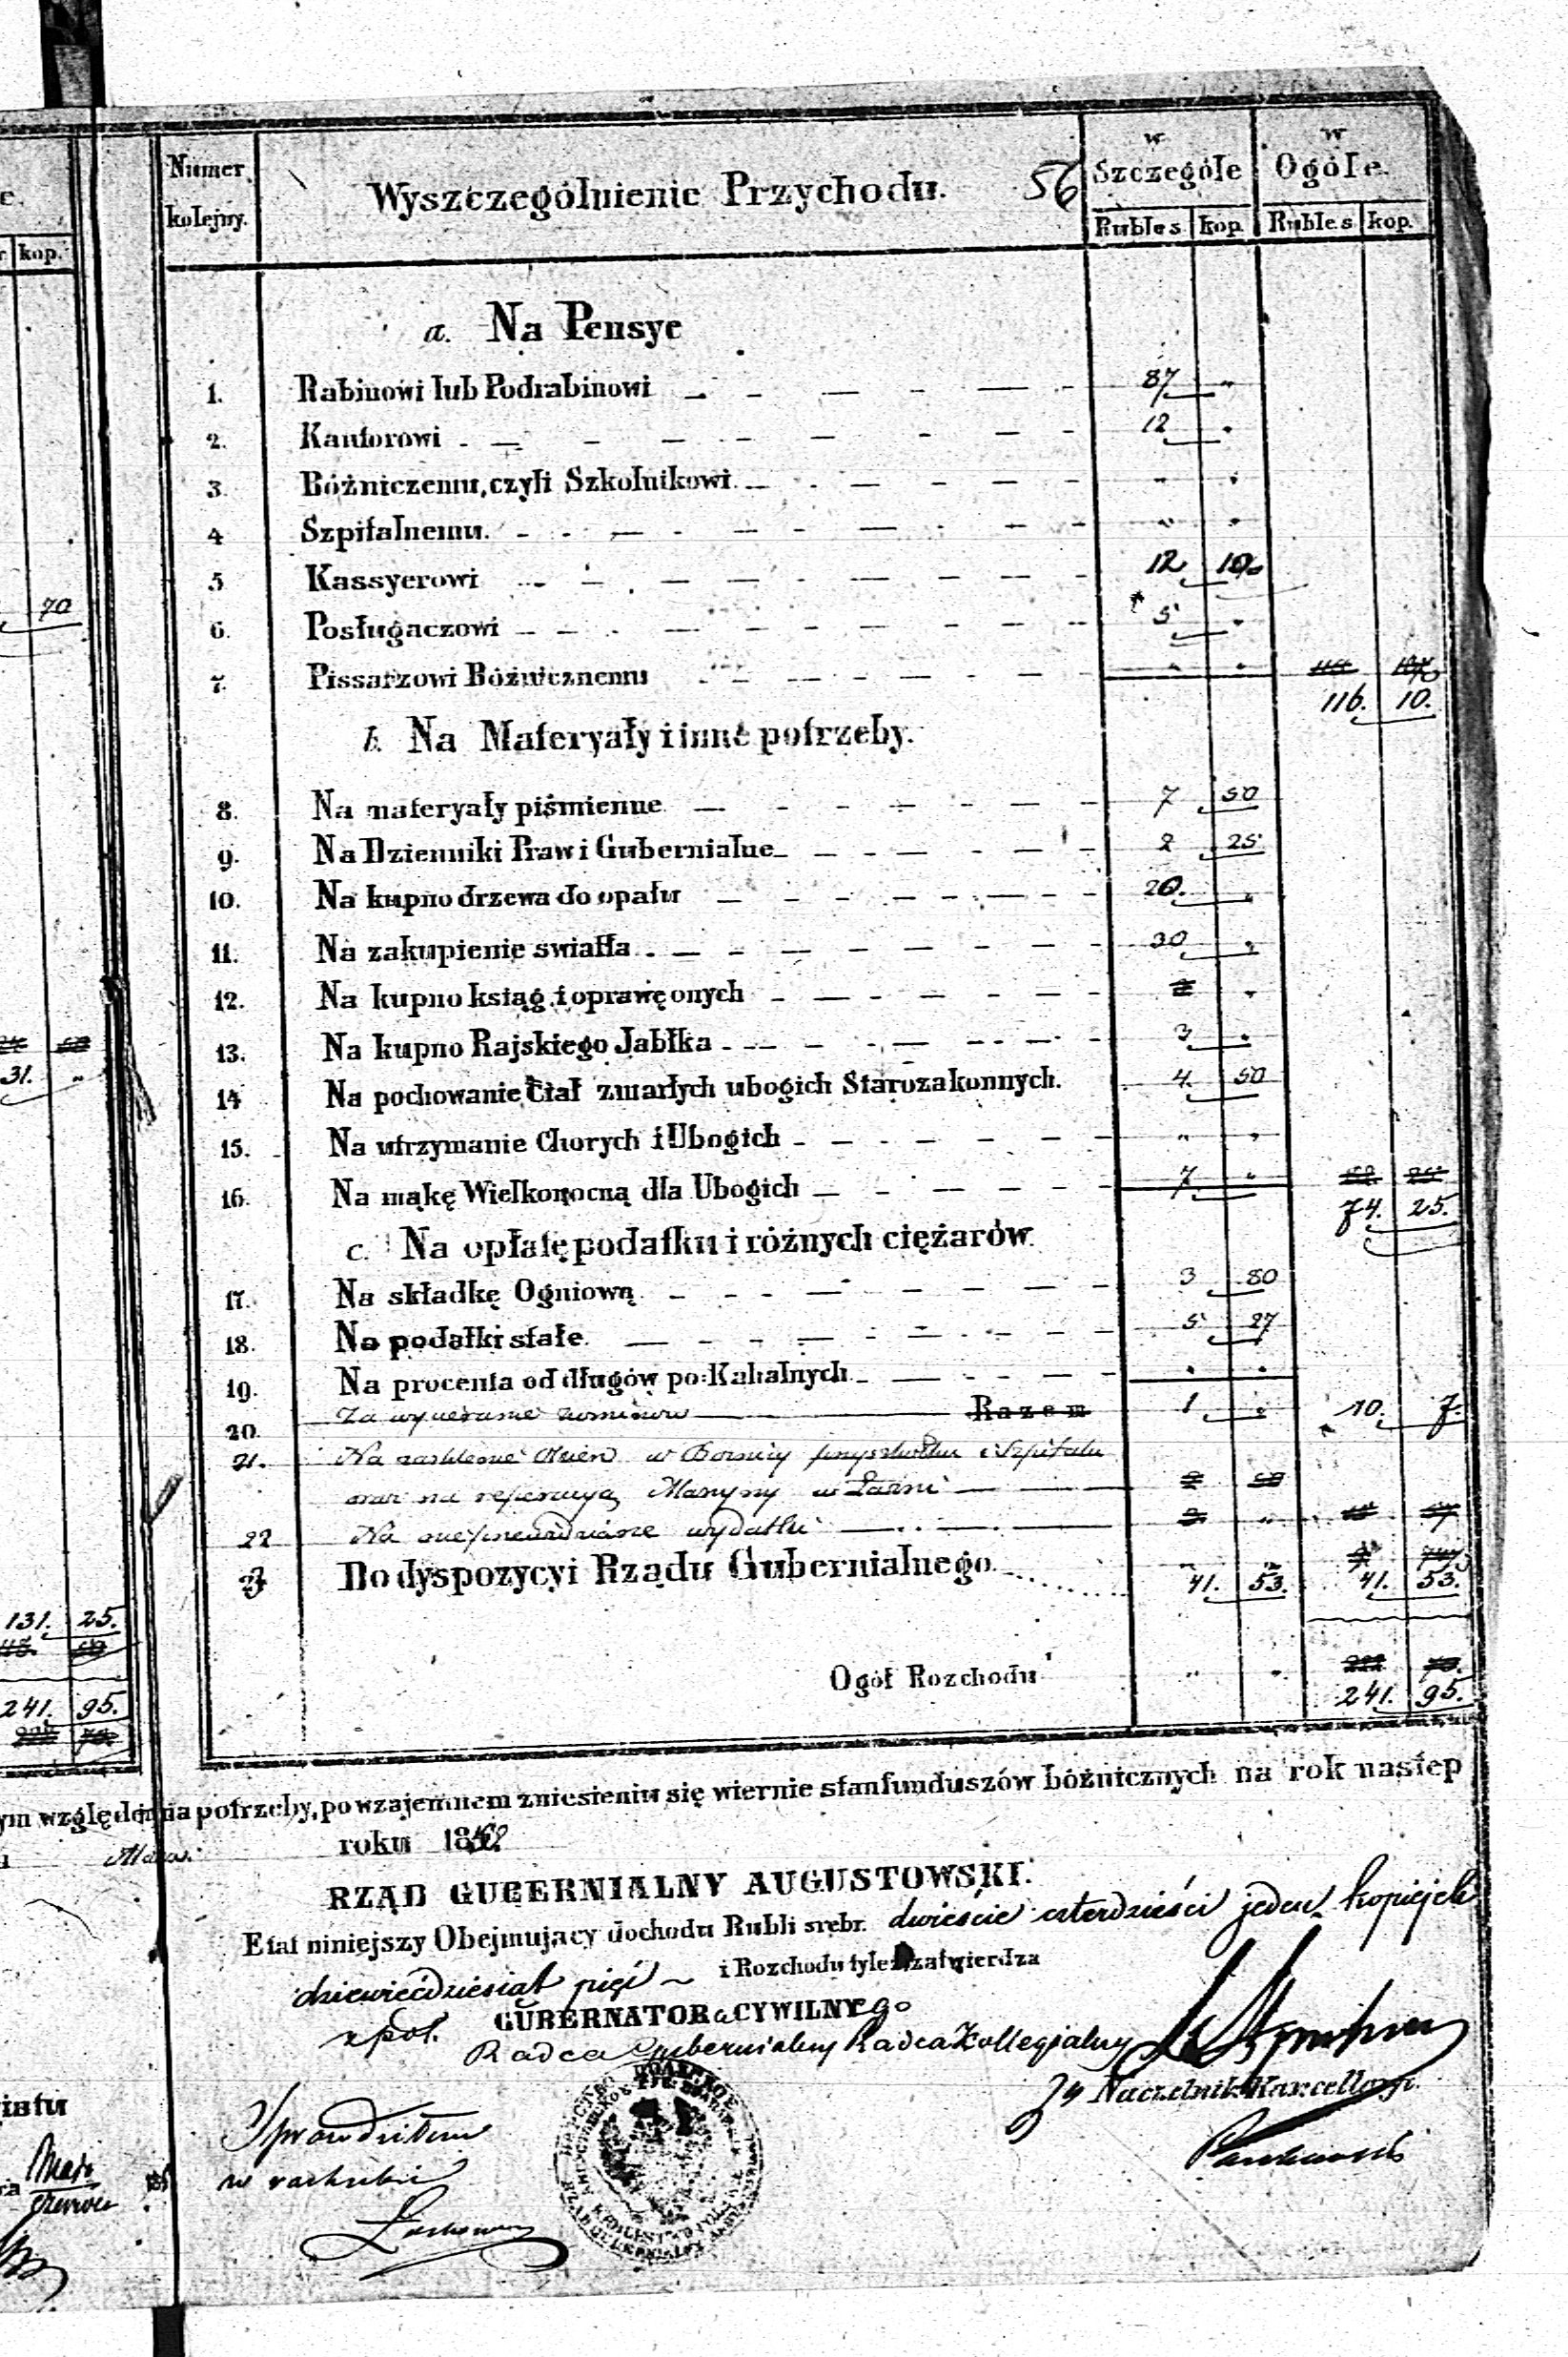 Numer kolejny.
Wyszczególnienie Przychodu. 56
w Szczególe
w Ogóle.
Rubles kop. Rubles kop.
kop.
a. Na Pensye
1. Rabinowi lub Podrabinowi 87 "
2. Kantorowi 12 "
3. Bóżniczemu, czyli Szkolnikowi " "
4 Szpitalnemu. " "
5 Kassyerowi 12 10
70
6. Posługaczowi 5 "
7. Pissarzowi Bóżnicznemu " "
116. 10.
b. Na Materyały i inne potrzeby.
8. Na materyały piśmienne 7 50
9. Na Dzienniki Praw i Gubernialne 2 25
10. Na kupno drzewa do opału 20. "
11. Na zakupienie swiatła 30 "
12. Na kupno ksiąg i oprawę onych 2 "
13. Na kupno Rajskiego Jabłka 3 "
31. "
14 Na pochowanie Ciał zmarłych ubogich Starozakonnych. 4. 50
15. Na utrzymanie Chorych i Ubogich " "
16. Na mąkę Wielkonocną dla Ubogich 7 "
74. 25.
c. Na opłatę podatku i różnych ciężarów
17. Na składkę Ogniową 3 80
18. Na podatki stałe. 5 27
19. Na procenta od długów po:Kahalnych " "
20. Za wycieranie kominów Razem 1 " 10. 7.
21. Na zasklenie Okien w Boznicy przyszkołku i Szpitalu
oraz na reperacyą w Łazni 2 50
22 Na nieprzewidziane wydatki
23 Do dyspozycyi Rządu Gubernialnego. 41. 53. 41. 53.
131. 25.
Ogół Rozchodu " "
241. 95.
241. 95.
ym względem na potrzeby, po wzajemnem zniesieniu się wiernie stanfunduszów bóżnicznych na rok następ
roku 18
RZĄD GUBERNIALNY AUGUSTOWSKI.
Etat niniejszy Obejmujący dochodu Rubli srebr. dwieście czterdzieści jeden kopiejek
dziewięćdziesiąt pięć i Rozchodu tyleż zatwierdza
z pol. GUBERNATORa CYWILNEgo
Radca Gubernialny Radca Kollegjalny
Naczelnik Kancellaryi
Sprawdziłem
w rachubie